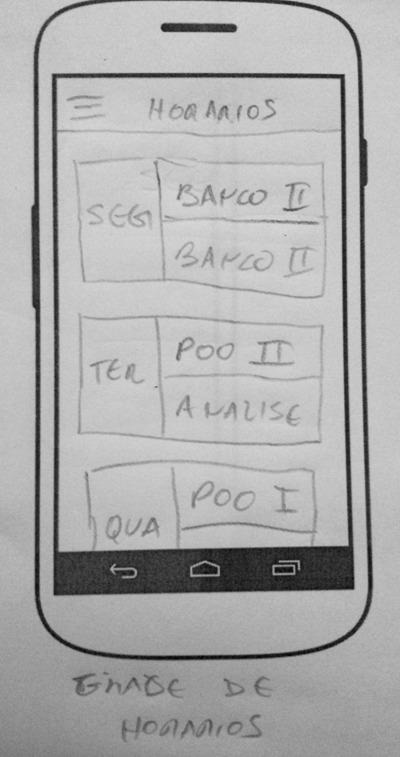 HORARIOS
SEG
BANCO II
BANCO II
TER
POO II
ANALISE
QUA
POO I
GRADE DE
HORARIOS